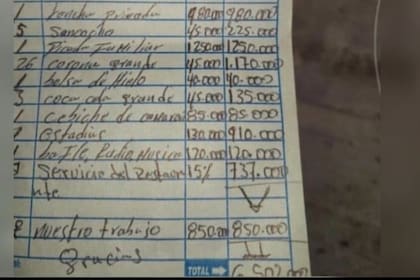 1 Lancha privada 980.000 980.000
5 Sancocho 45.000 225.000
1 Picada Familiar 1250.000 1250.000
26 corona grande 45.000 1.170.000
1 bolsa de Hielo 40.000 40.000
3 coca cola grande 45.000 135.000
1 Cebiche de camaron 85.000 85.000
7 Estadias 130.000 910.000
1 baile, Radio Musica 120.000 120.000
Servicio del Restaura 15% 737.000
nte
nuestro trabajo 850.000 850.000
gracias
TOTAL 6.502.000